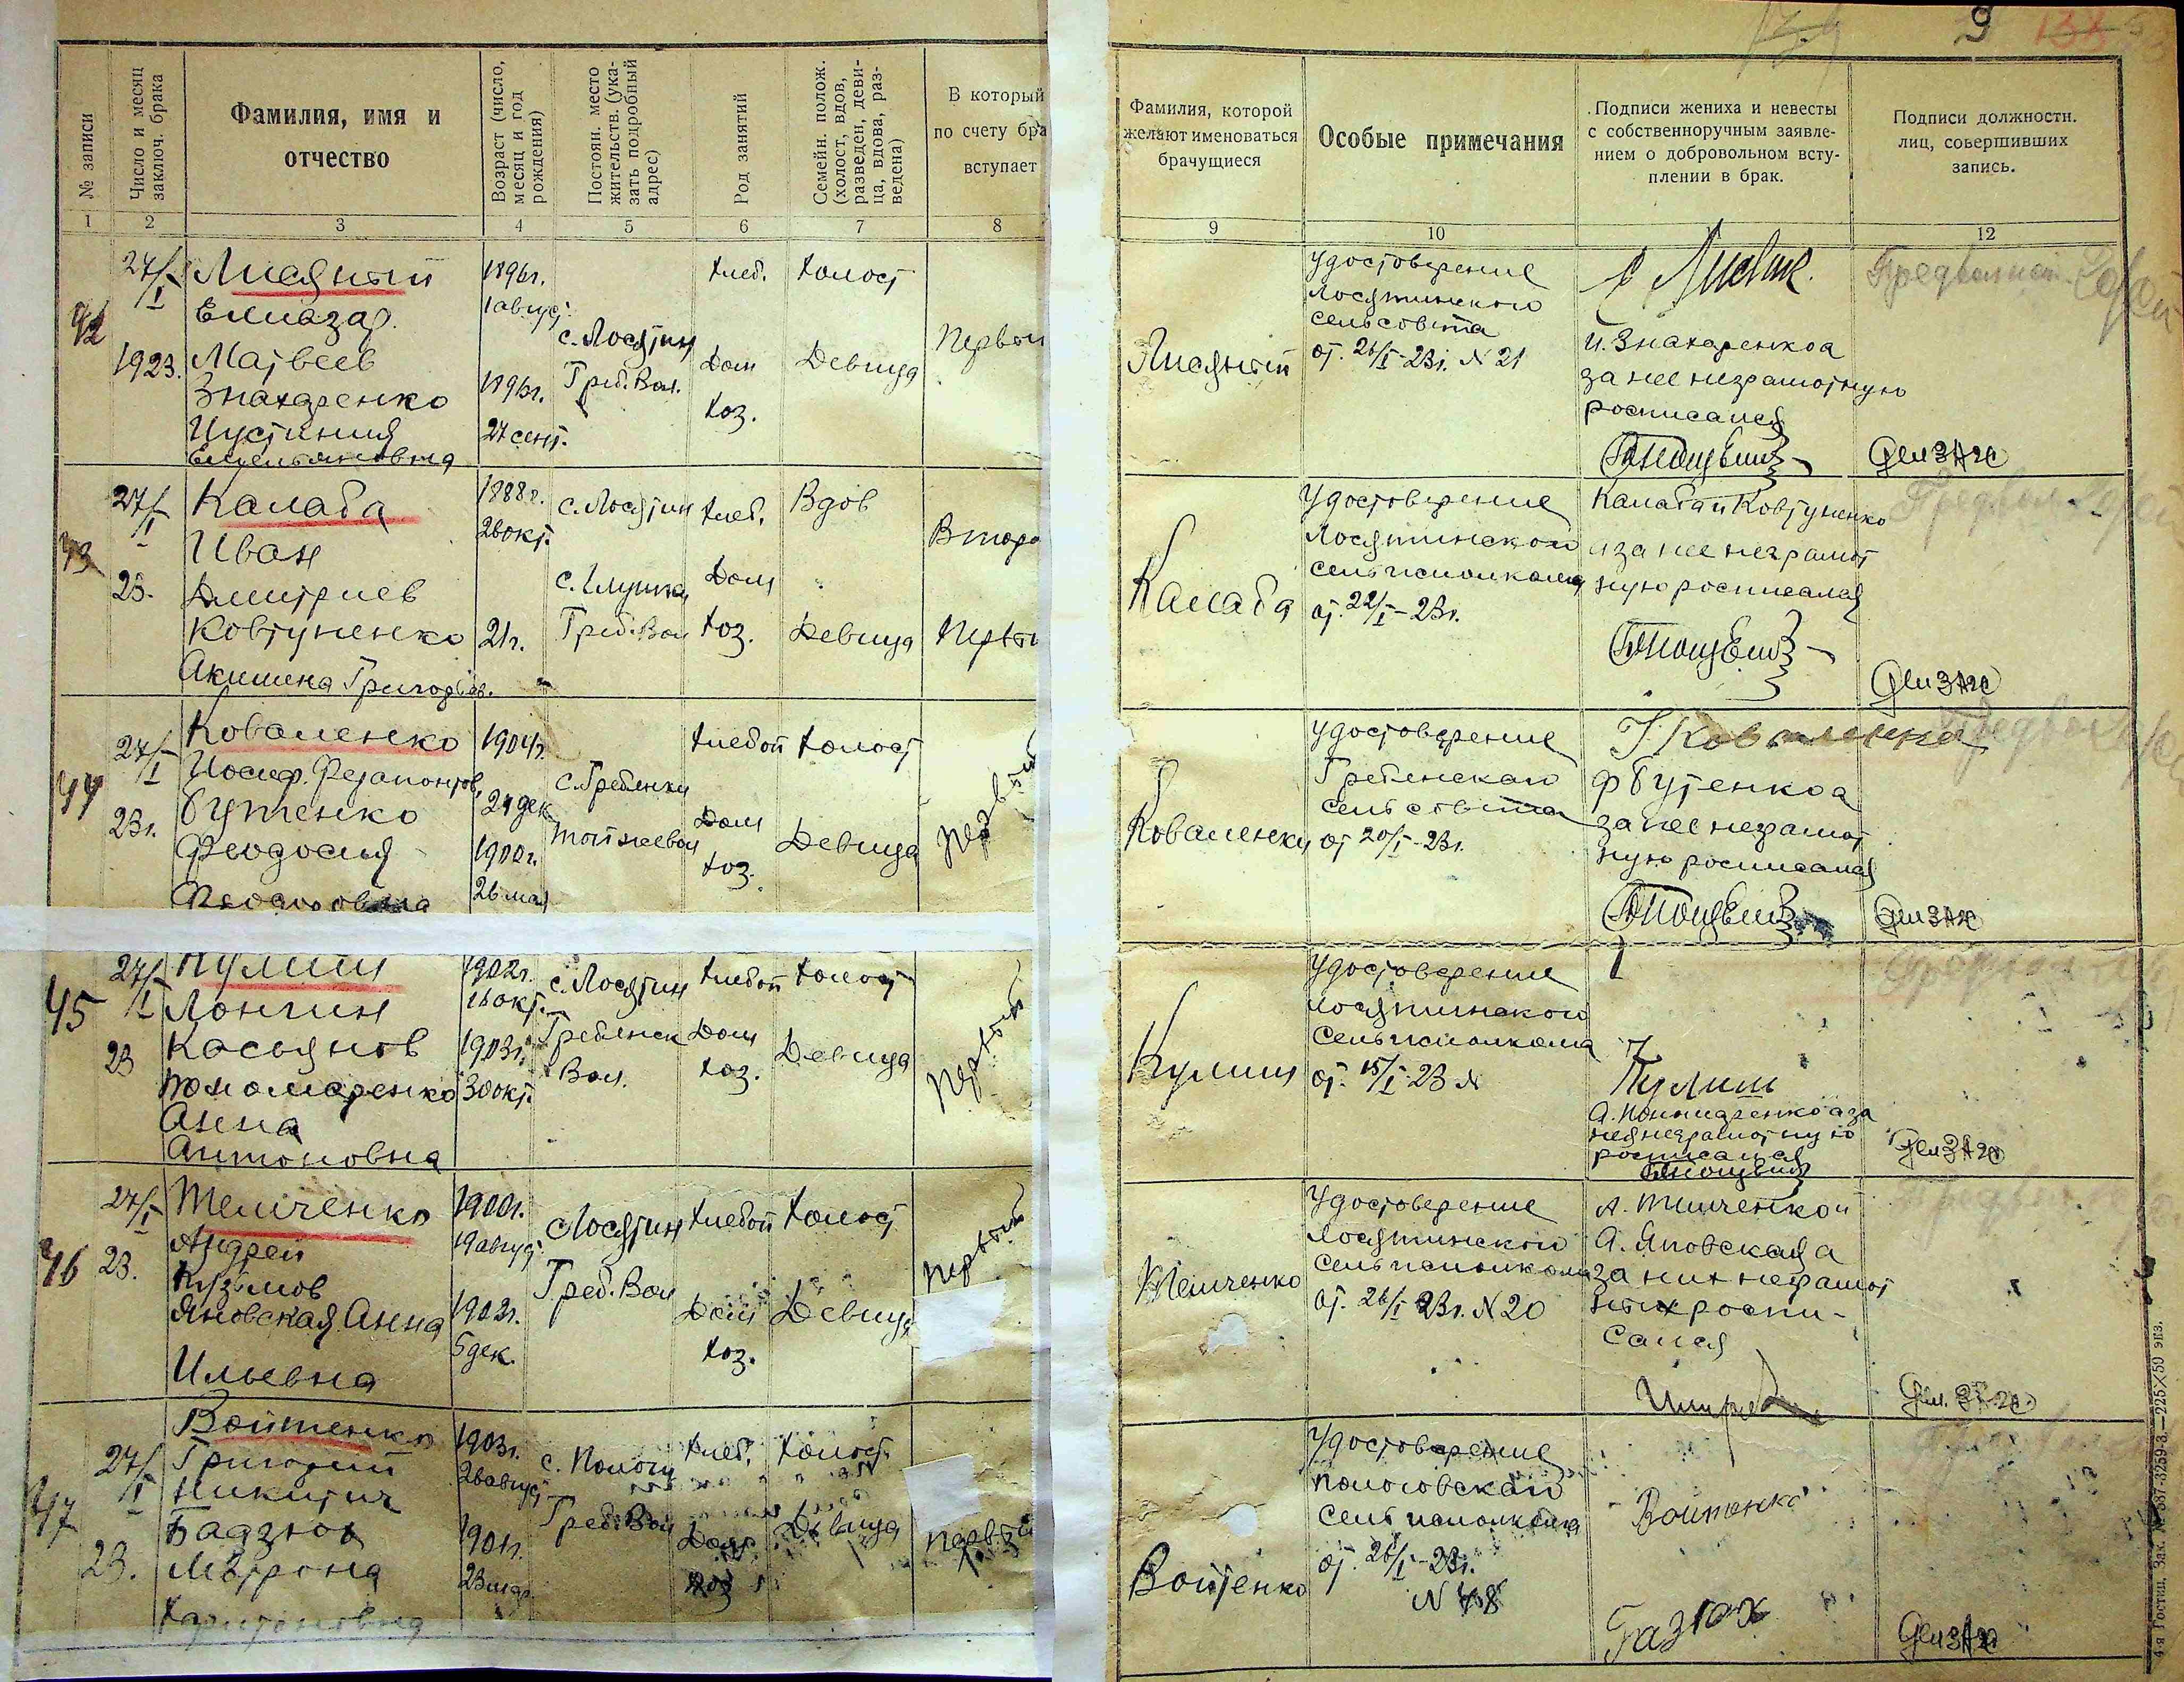 9
№ записи
Число и месяц
заключ. брака
Фамилия, имя и
отчество
Возраст (число,
месяц и год
рождения)
Постоян. место
жительств. (ука-
зать подробный
адрес)
Род занятий
Семейн. полож.
(холост, вдов,
разведен, деви-
ца, вдова, раз-
ведена)
В который
по счету бра
вступает
Фамилия, которой
желают именоваться
брачущиеся
Особые примечания
Подписи жениха и невесты
с собственноручным заявле-
нием о добровольном всту-
плении в брак.
Подписи должностн.
лиц, совершивших
запись.
1 2 3 4 5 6 7 8 9 10 12
42
27/I
1923.
Лисяный
Елиазар.
Матвеев
Знахаренко
Иустиния
Емельяновна
1896г.
1 август.
1896г.
27 сент.
с. Лосятин
Греб. Вол.
хлеб.
Дом
хоз.
холост
Девица
Первый
Лисяный
Удостоверение
Лосятинского
сельсовета
от. 26/I-23г. N 21
И. Знахаренко а
за нее неграмотную
росписался
43
27/I
23.
Калаба
Иван
Дмитриев
Ковтуненко
Акилина Григорьев.
1888г.
26 окт.
21г.
с. Лосятин
Греб. Вол
хлеб.
Дом
хоз.
Вдов
Девица
Второ
Калаба
Удостоверение
Лосятинского
сельисполкома
от. 22/I-23г.
Калаба и Ковтуненко
а за нее неграмот
ную росписался
44
27/I
23г.
Коваленко
Иосиф. Ферапонтов.
Бутенко
Феодосия
1904г.
24 дек
1900г.
26 мая
с. Гребенки
той же вол
хлебоп
Дом
хоз.
холост
Девица
Первый
Коваленки
Удостоверение
Гребенского
сельсовета
от 20/I-23г.
Г. Коваленко
Ф Бутенко а
за нее неграмот
ную росписался
45
27/I
23
Кулиш
Лонгин
Касьянов
Пономаренко
Анна
Антоновна
1902г.
16 окт.
1903г.
30 окт.
с. Лосятин
Гребенск
Вол.
хлебоп
Дом
хоз.
холост
Девица
Первый
Кулиш
Удостоверение
Лосятинского
Сельисполкома
от. 15/I-23 N
Кулиш
А. Пономаренко а за
нея неграмотную
росписался
46
27/I
23.
Темченко
Андрей
Кузьмов
Яновская Анна
Ильевна
1900г.
19 август.
1902г.
5 дек.
с Лосятин
Греб. Вол
хлебоп
Дом
хоз.
холост
Девица
Первый
Темченко
Удостоверение
Лосятинского
Сельисполкома
от. 26/I 23г. N 20
А. Темченко и
А. Яновская а
за них неграмот
ных роспи-
сался
47
27/I
23.
Войтенко
Григорий
Никитич
Бадзюх
Матрона
Харитоновна
1903г.
26 август
1901г.
23 мар
с. Пологи
Греб. Вол
хлеб.
Дом.
хоз
холост.
Девица
Первый
Войтенко
Удостоверение
Пологовского
Сельисполкома
от. 26/I-23г.
N 48
Войтенко
4-я Гостип. Зак. № 387-3259-3.—225×50 экз.